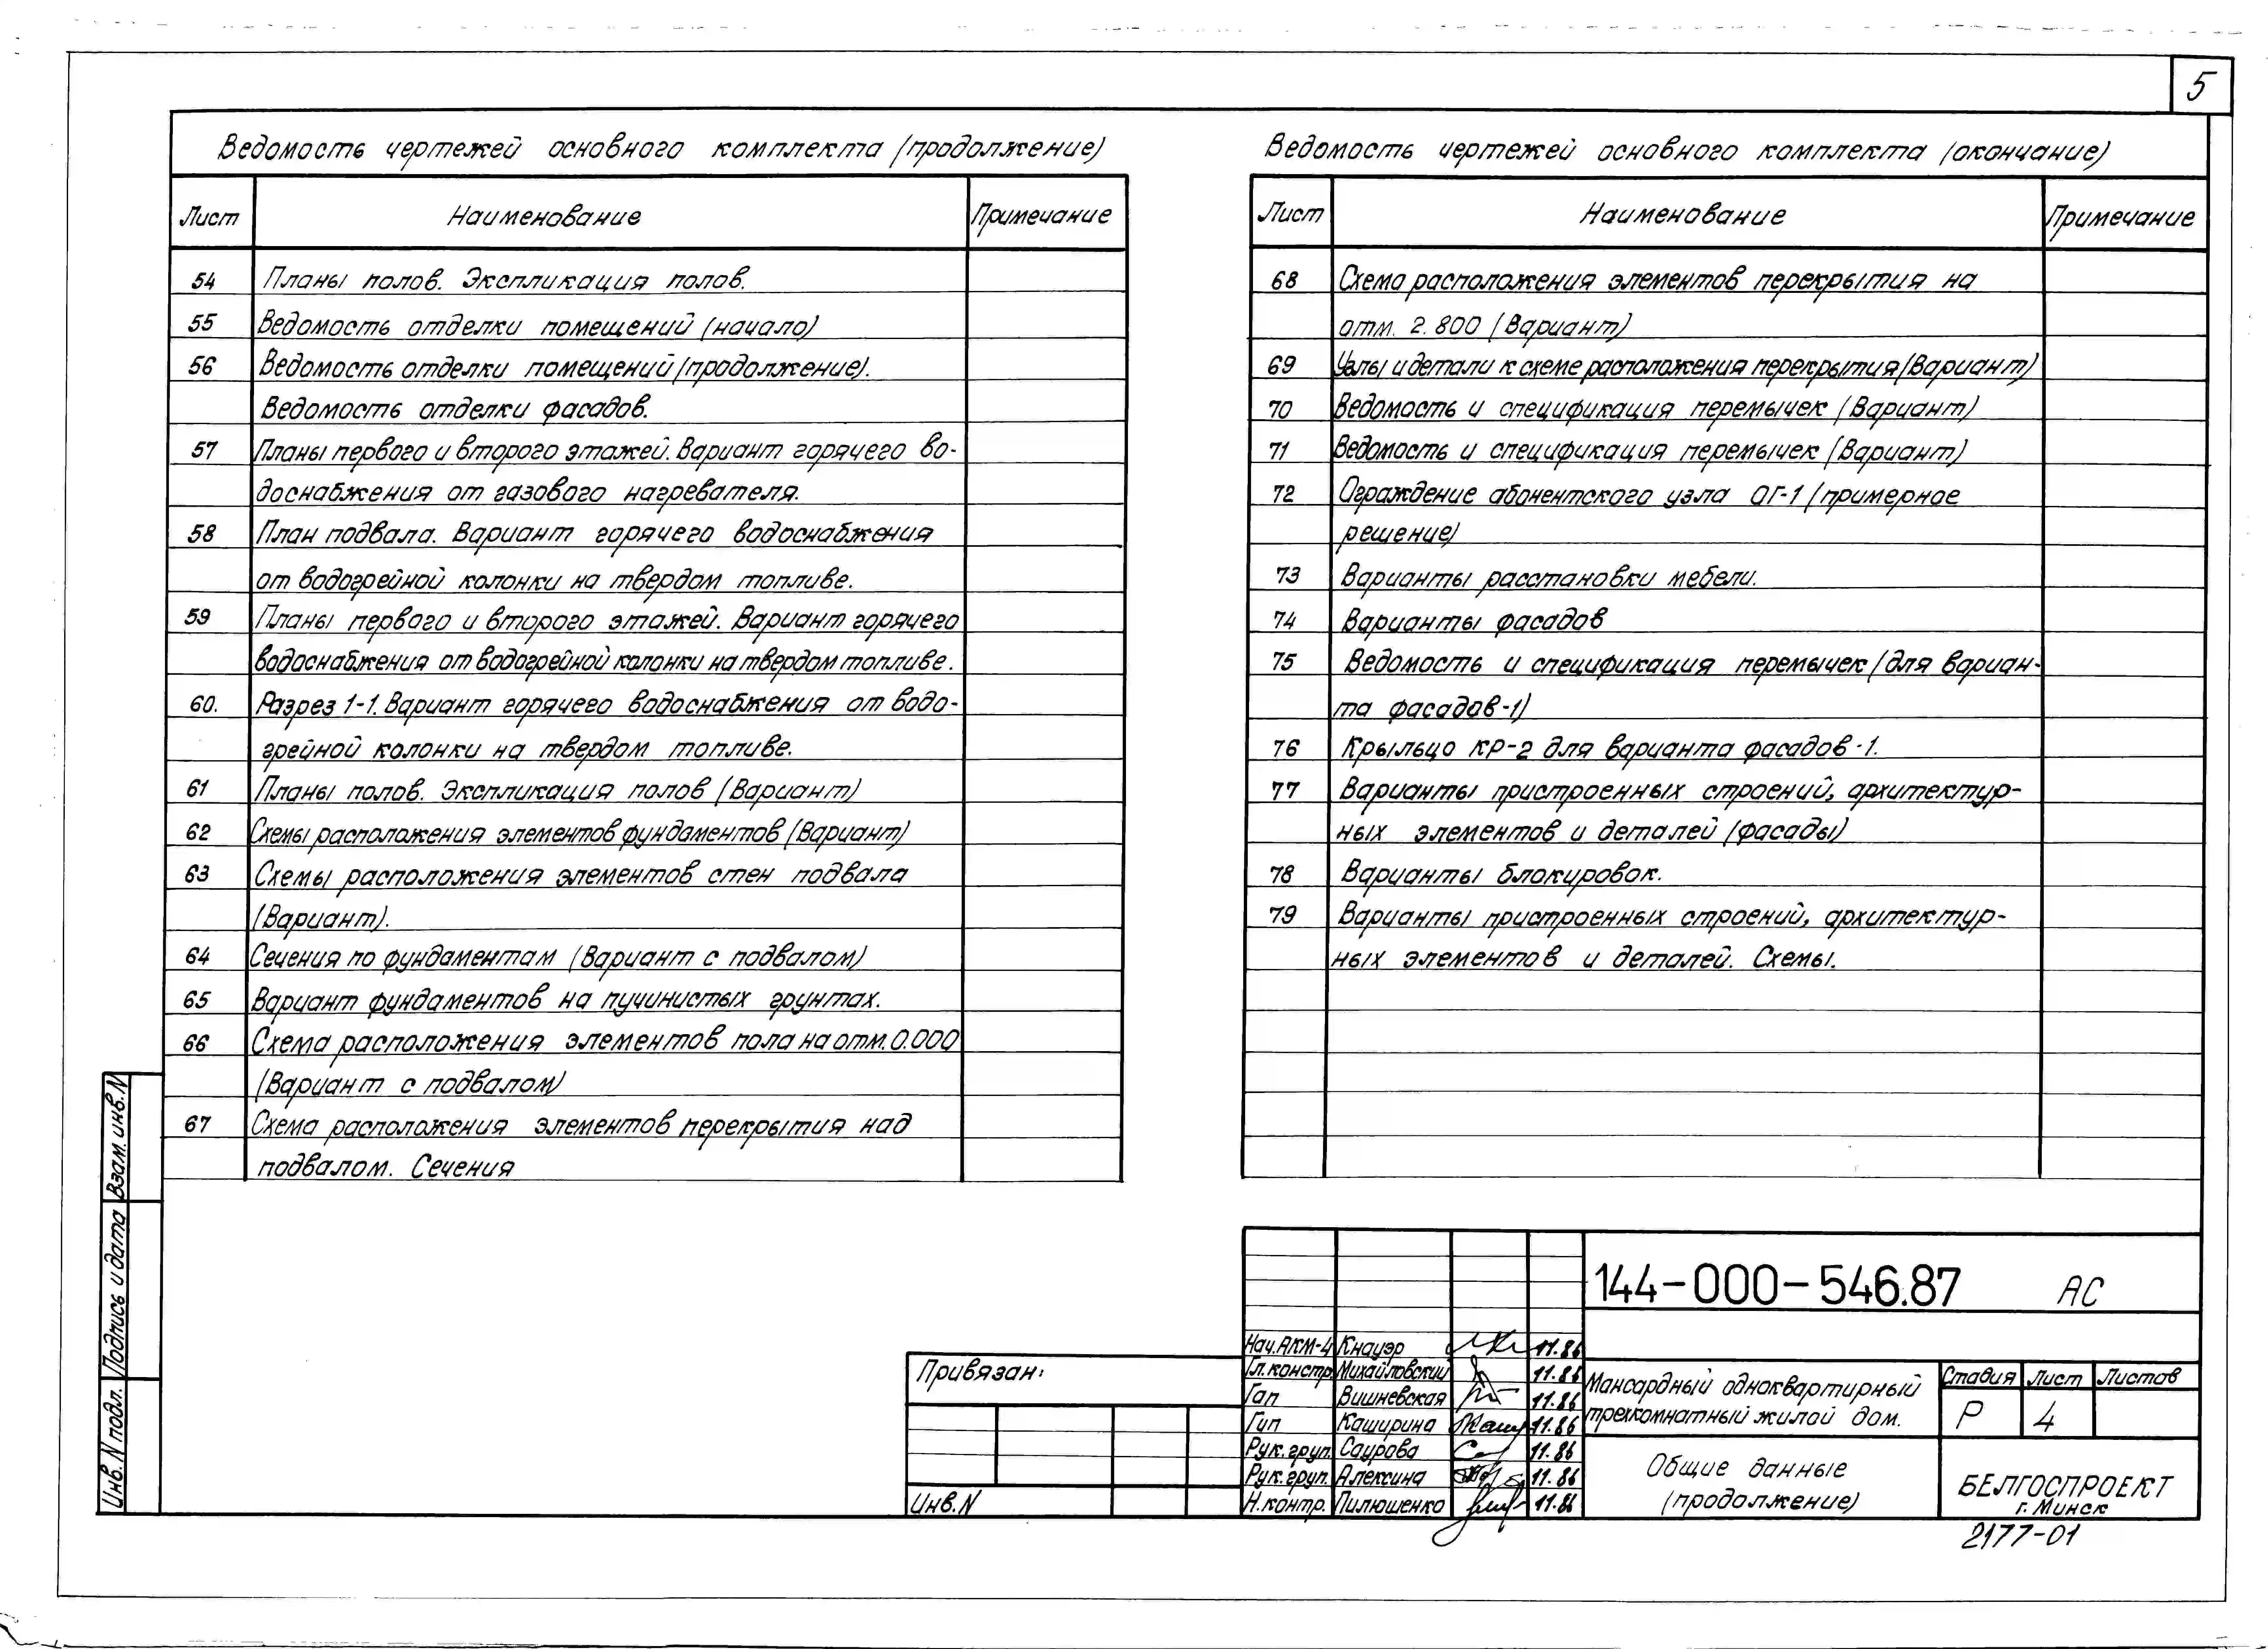 5
Ведомость чертежей основного комплекта (продолжение)
Лист Наименование Примечание
54 Планы полов. Экспликация полов.
55 Ведомость отделки помещений (начало)
56 Ведомость отделки помещений (продолжение).
Ведомость отделки фасадов.
57 Планы первого и второго этажей. Вариант горячего во-
доснабжения от газового нагревателя.
58 План подвала. Вариант горячего водоснабжения
от водогрейной колонки на твердом топливе.
59 Планы первого и второго этажей. Вариант горячего
водоснабжения от водогрейной колонки на твердом топливе.
60. Разрез 1-1. Вариант горячего водоснабжения от водо-
грейной колонки на твердом топливе.
61 Планы полов. Экспликация полов (Вариант)
62 Схемы расположения элементов фундаментов (Вариант)
63 Схемы расположения элементов стен подвала
(Вариант).
64 Сечения по фундаментам (Вариант с подвалом)
65 Вариант фундаментов на пучинистых грунтах.
66 Схема расположения элементов пола на отм. 0.000
(Вариант с подвалом)
67 Схема расположения элементов перекрытия над
подвалом. Сечения
Ведомость чертежей основного комплекта (окончание)
Лист Наименование Примечание
68 Схема расположения элементов перекрытия на
отм. 2.800 (Вариант)
69 Узлы и детали к схеме расположения перекрытия (Вариант)
70 Ведомость и спецификация перемычек (Вариант)
71 Ведомость и спецификация перемычек (Вариант)
72 Ограждение абонентского узла ОГ-1 (примерное
решение)
73 Варианты расстановки мебели.
74 Варианты фасадов
75 Ведомость и спецификация перемычек (для вариан-
та фасадов-1)
76 Крыльцо КР-2 для варианта фасадов-1.
77 Варианты пристроенных строений, архитектур-
ных элементов и деталей (фасады)
78 Варианты блокировок.
79 Варианты пристроенных строений, архитектур-
ных элементов и деталей. Схемы.
Взам. инв. N
Подпись и дата
Инв. N подл.
Привязан:
Инв. N
144-000-546.87 АС
Нач. АКМ-4 Кнауэр 11.86
Гл. констр. Михайловский 11.86
Гап Вишневская 11.86
Гип Каширина 11.86
Рук. груп. Саурова 11.86
Рук. груп. Алексина 11.86
Н. контр. Пилюшенко 11.86
Мансардный одноквартирный
трехкомнатный жилой дом.
Стадия Лист Листов
Р 4
Общие данные
(продолжение)
БЕЛГОСПРОЕКТ
г. Минск
2177-01